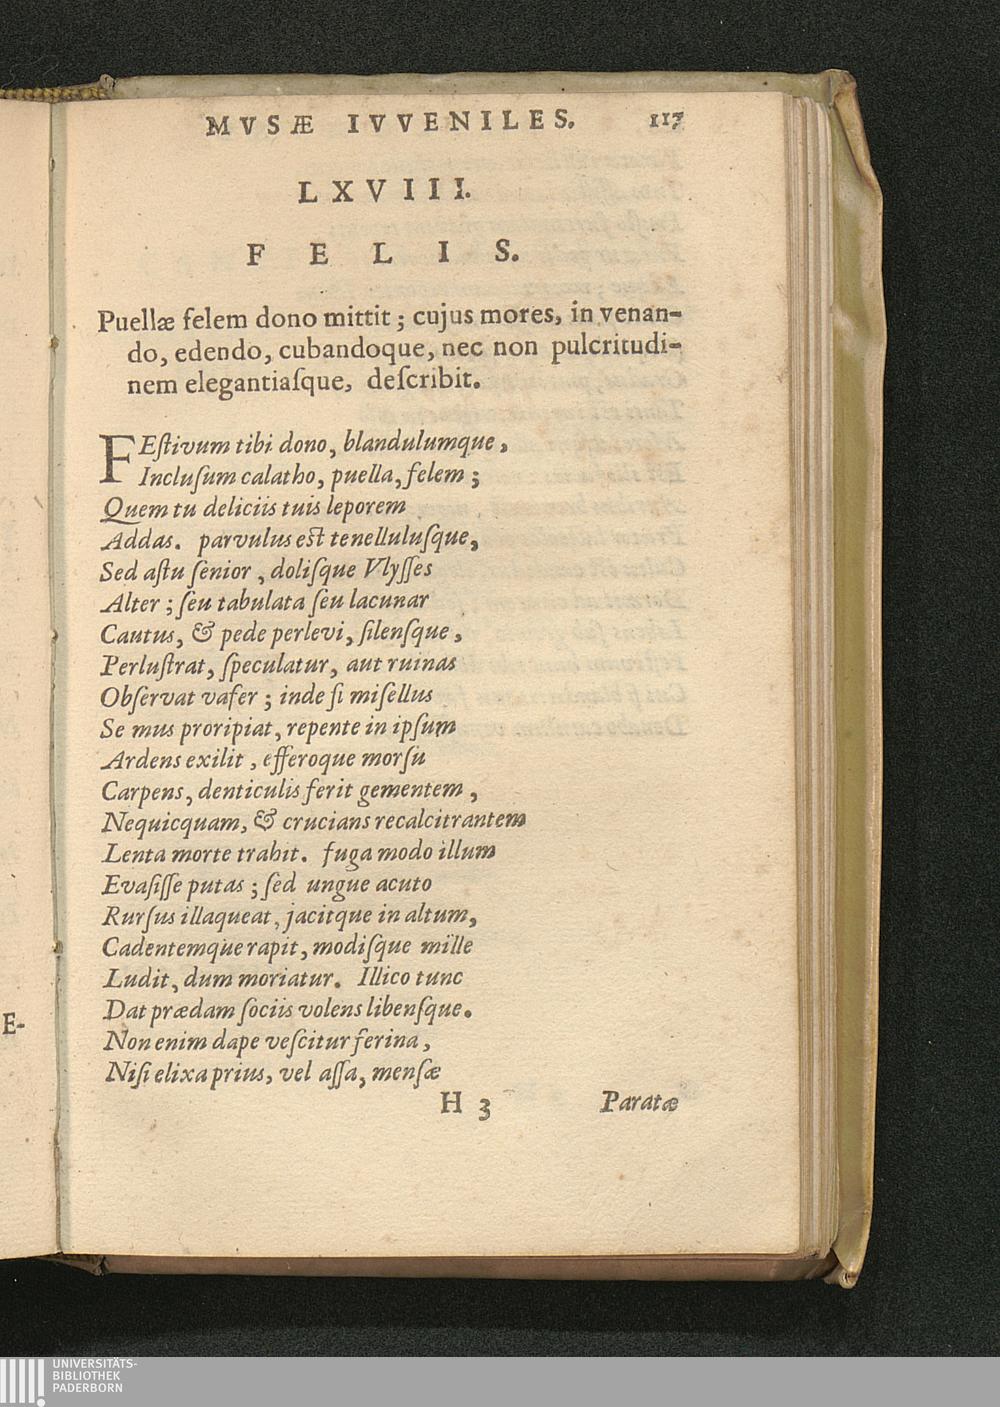 MVSÆ IVVENILES. 117
LXVIII.
FELIS.
Puellæ felem dono mittit; cujus mores, in venan-
do, edendo, cubandoque, nec non pulcritudi-
nem elegantiaſque, deſcribit.
FEſtivum tibi dono, blandulumque,
Incluſum calatho, puella, felem;
Quem tu deliciis tuis leporem
Addas. parvulus eſt tenelluluſque,
Sed aſtu ſenior, doliſque Vlyſſes
Alter; ſeu tabulata ſeu lacunar
Cautus, & pede perlevi, ſilenſque,
Perluſtrat, ſpeculatur, aut ruinas
Obſervat vafer; inde ſi miſellus
Se mus proripiat, repente in ipſum
Ardens exilit, efferoque morſu
Carpens, denticulis ferit gementem,
Nequicquam, & crucians recalcitrantem
Lenta morte trahit. fuga modo illum
Evaſiſſe putas; ſed ungue acuto
Rurſus illaqueat, jacitque in altum,
Cadentemque rapit, modiſque mille
Ludit, dum moriatur. Illico tunc
Dat prædam ſociis volens libenſque.
Non enim dape veſcitur ferina,
Niſi elixa prius, vel aſſa, menſæ
H 3 Paratæ
E-
UNIVERSITÄTS-
BIBLIOTHEK
PADERBORN